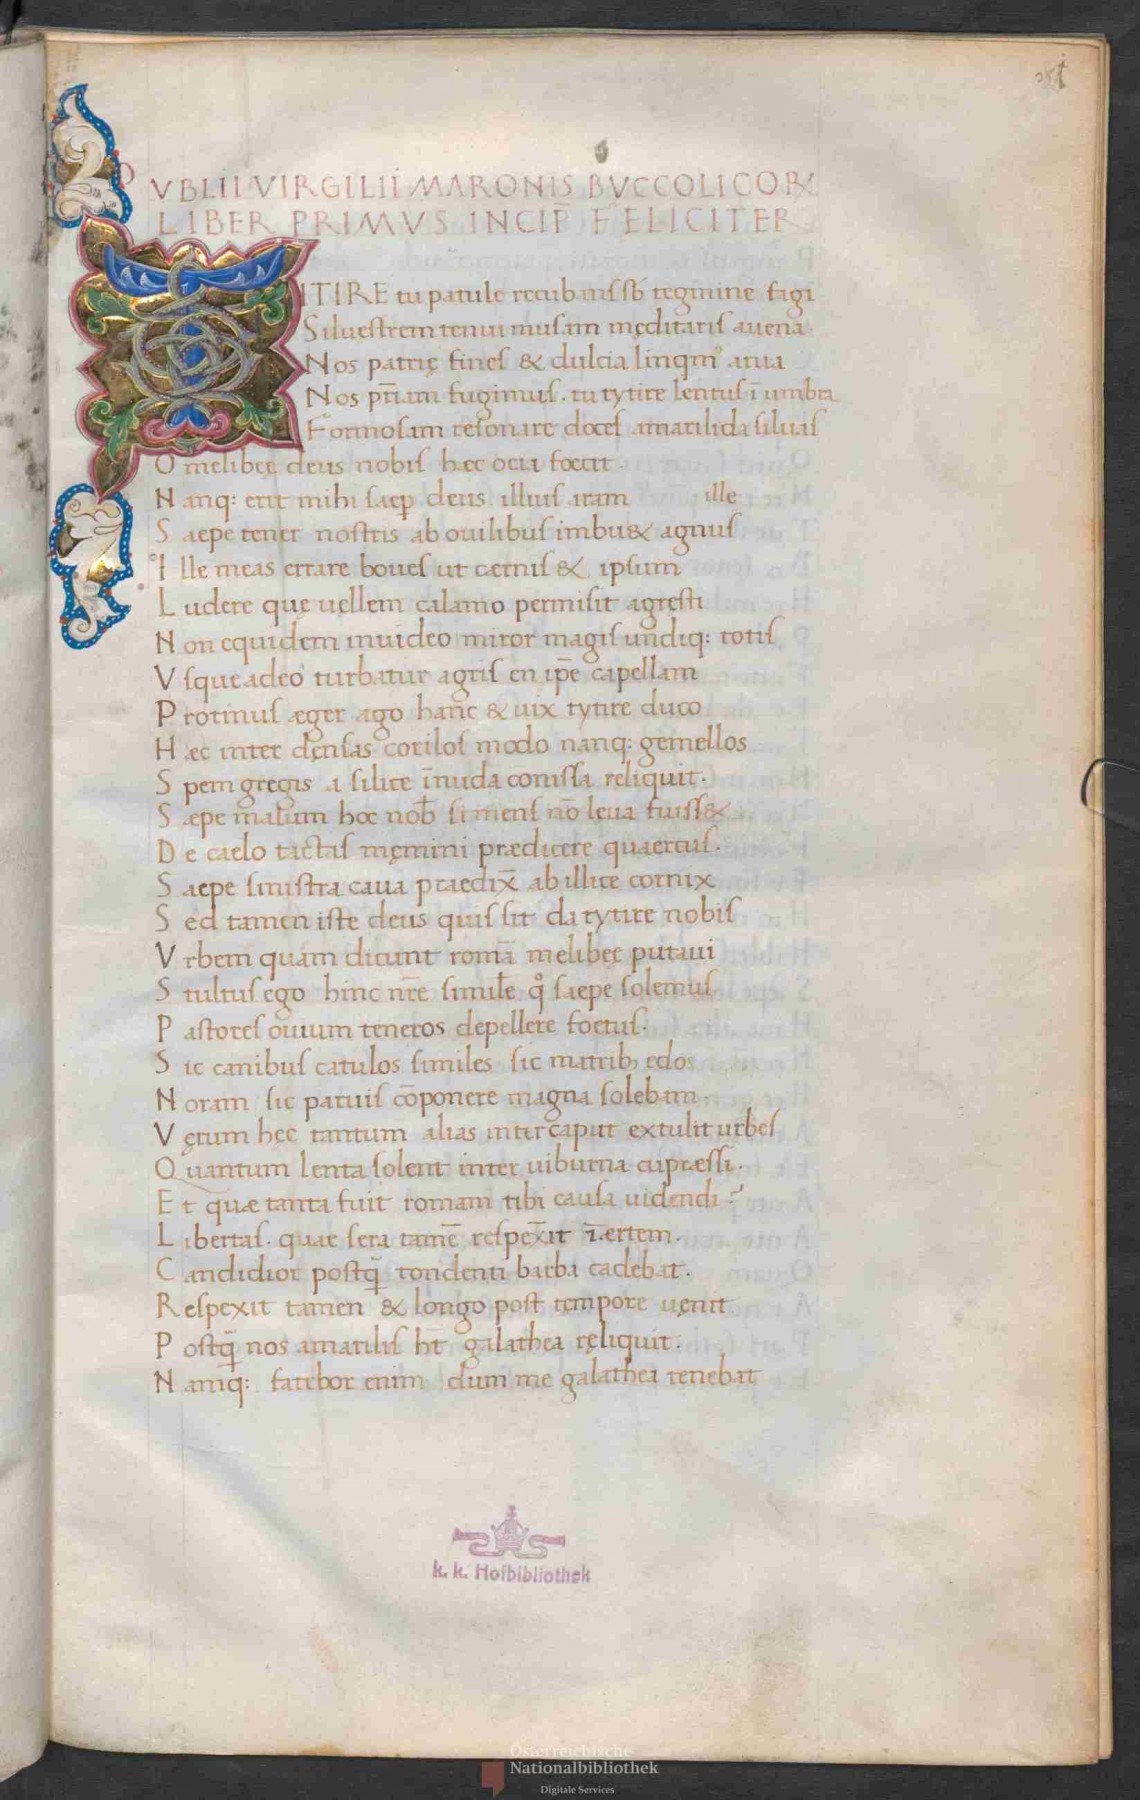 1
PUBLII VIRGILII MARONIS BVCCOLICOꝜ
LIBER PRIMVS INCIP̄ FELICITER
TITIRE tu patule recubans sb̄ tegmine fagi
Siluestrem tenui musam męditaris auena.
Nos patrię fines & dulcia linqmꝰ arua
Nos pr̄iam fugimus. tu tytire lentus ī umbra
Formosam resonare doces amarilida siluas
O melibeę deus nobis hec ocia foecit.
Nanq: erit mihi saep̄ deus illius aram ille
Saepe tener nostris ab ouilibus imbu& agnus
Ille meas errare boues ut cernis & ipsum
Ludere quę uellem calamo permisit agresti
Non equidem inuideo miror magis undiq: totis
Vsque adeo turbatur agris en ip̄e capellam
Protinus æger ago hanc & uix tytire duco
Hæc inter dęnsas corilos modo nanq: gemellos
Spem gregis a silice īnuda conissa reliquit.
Sæpe malum hoc nob̄ si mens nō leua fuiss&
De caelo tactas męmini prædicere quaercus.
Saepe sinistra caua praedix̄ ab illice cornix
Sed tamen iste deus quis sit da tytire nobis
Vrbem quam dicunt romā melibeę putaui
Stultus ego hinc nr̄e simile qͦ saepe solemus
Pastores ouium teneros depellere foetus.
Sic canibus catulos similes sic matrib; edos
Noram sic paruis cōponere magna solebam.
Vęrum hęc tantum alias inter caput extulit urbes
Quantum lenta solent inter uiburna cupræssi.
Et quæ tanta fuit romam tibi causa uidendi?
Libertas. quae sera tamē respexit īærtem.
Candidior postq̄ tondenti barba cadebat.
Respexit tamen & longo post tempore uęnit
Postq̄ nos amarilis ht̄ galathea ręliquit.
Namq: fatebor enim dum me galathea tenebat
k. k. Hofbibliothek
Österreichische
Nationalbibliothek
Digitale Services